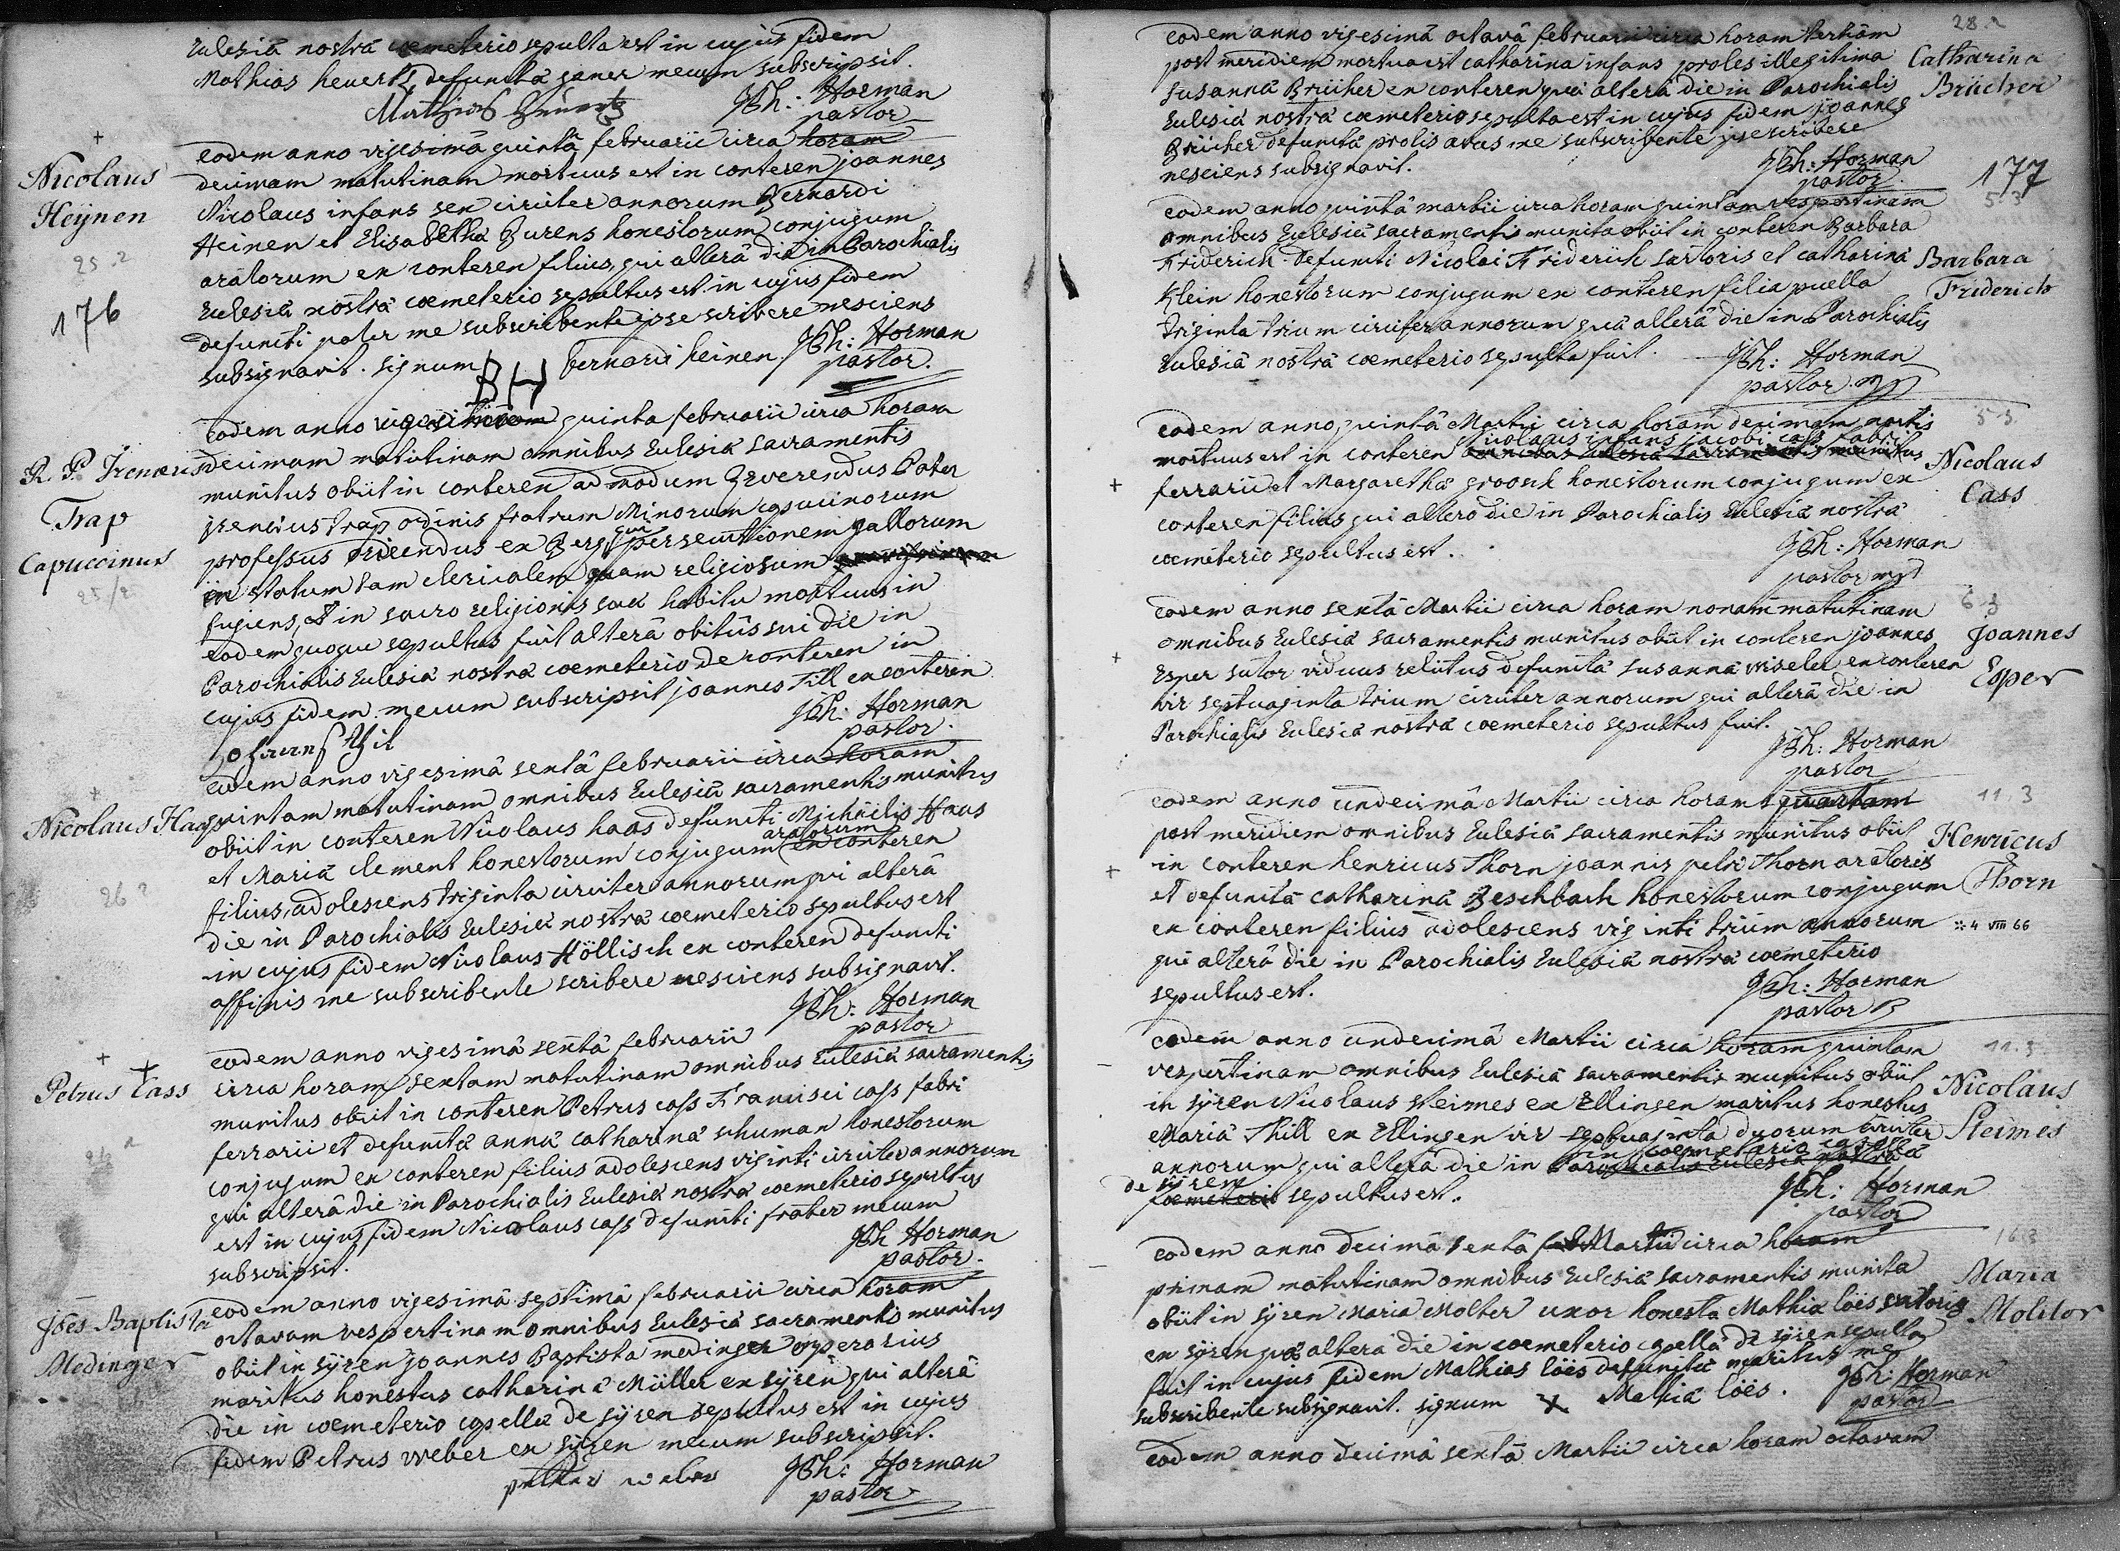 Eclesiâ nostrâ coemeterio sepulta est in cujus fidem
Mathias heuertz defunctâ gener mecum subscripsit.
Mathias Heuertz JPh: Horman
pastor
+
Nicolaus
Heÿnen
25.2
176
eodem anno vigesimâ quintâ februarii circa horam
decimam matutinam mortuus est in conteren joannes
Nicolaus infans sex circiter annorum Bernardi
Heinen et Elisabetha Burens honestorum conjugum
aratorum ex conteren filius, qui alterâ die in Parochialis
Eclesiâ nostrâ coemeterio sepultus est in cujus fidem
defuncti pater me subscribente ipse scribere nesciens
subsignavit. signum BH bernardi heinen. JPh: Horman
pastor.
R. P. Irenæus
Trap
Capuccinus
25/2
eodem anno quinta februarii circa horam
decimam matutinam omnibus Eclesiâ sacramentis
munitus obiit in conteren admodum Reverendus Pater
jreneus trap ordinis fratrum Minorum capucinorum
professus ex persecutionem gallorum
in statum tam clericalem quam religiosum
fugiens, et in sacro religionis suæ habitu mortuus in
eodem quoque sepultus fuit alterâ obitûs sui die in
Parochialis Eclesiâ nostrâ coemeterio de conteren in
cujus fidem mecum subscripsit joannes Till ex conteren
JPh: Horman
pastor.
+
Nicolaus Haas
26 2
eodem anno vigesimâ sextâ februarii circa horam
quintam matutinam omnibus Eclesiâ sacramentis munitus
obiit in conteren Nicolaus haas defuncti Michaëlis Haas
et Mariâ Clement honestorum conjugum aratorum ex conteren
filius, adolescens triginta circiter annorum qui alterâ
die in Parochialis Eclesiâ nostrâ coemeterio sepultus est
in cujus fidem Nicolaus Höllisch ex conteren defuncti
affinis me subscribente scribere nesciens subsignavit.
JPh: Horman
pastor
+ +
Petrus Cass
eodem anno vigesimâ sextâ februarii
circa horam sextam matutinam omnibus Eclesiâ sacramentis
munitus obiit in conteren Petrus cass Francisci cass fabri
ferrarii et defunctâ annâ catharinâ schuman honestorum
conjugum ex conteren filius adolescens viginti circiter annorum
qui alterâ die in Parochialis Eclesiâ nostrâ coemeterio sepultus
est in cujus fidem Nicolaus cass defuncti frater mecum
subscripsit. JPh Horman
pastor.
Jões Baptista
Medinger
eodem anno vigesimâ septimâ februarii circa horam
octavam vespertinam omnibus Eclesiâ sacramentis munitus
obiit in sÿren joannes Baptista medinger operarius
maritus honestus catherinâ Müller ex sÿren qui alterâ
die in coemeterio capellæ de sÿren sepultus est in cujus
fidem Petrus weber ex sÿren mecum subscripsit.
petter weber JPh: Horman
pastor
28.2
Catharina
Brücher
177
eodem anno vigesimâ octavâ februarii circa horam tertiam
post meridiem mortua est catharina infans proles illegitima
susannâ Brücher ex conteren quæ alterâ die in Parochialis
Eclesiâ nostrâ coemeterio sepulta est in cujus fidem joannes
Brücher defunctâ prolis avus me subscribente ipse scribere
nesciens subsignavit. JPh: Horman
pastor.
5 3
Barbara
Friderich
eodem anno quintâ martii circa horam quintam vespertinam
omnibus Eclesiâ sacramentis munita obiit in conteren Barbara
Friderich defuncti Nicolai Friderich sartoris et catharinâ
Klein honestorum conjugum ex conteren filia puella
triginta trium circiter annorum quâ alterâ die in Parochialis
Eclesiâ nostrâ coemeterio sepulta fuit. JPh: Horman
pastor
5 3
+
Nicolaus
Cass
eodem anno, quintâ Martii circa horam decimam noctis
mortuus est in conteren omnibus Eclesiâ sacramentis munitus Nicolaus infans jacobi cass fabri
ferrarii et Margarethâ groosch honestorum conjugum ex
conteren filius qui altero die in Parochialis Eclesiâ nostrâ
coemeterio sepultus est. JPh: Horman
pastor
6 3
+
Joannes
Esper
eodem anno sextâ Martii circa horam nonam matutinam
omnibus Eclesiâ sacramentis munitus obiit in conteren joannes
Esper sutor viduus relictus defunctâ susannâ wiseler ex conteren
vir septuaginta trium circiter annorum qui alterâ die in
Parochialis Eclesiâ nostrâ coemeterio sepultus fuit.
JPh: Horman
pastor
11 3
+
Henricus
Thorn
* 4 VIII 66
eodem anno undecimâ Martii circa horam quartam
post meridiem omnibus Eclesiâ sacramentis munitus obiit
in conteren henricus Thorn joannis petri Thorn aratoris
et defunctâ catharinâ Beschbach honestorum conjugum
ex conteren filius adolescens viginti trium annorum
qui alterâ die in Parochialis Eclesiâ nostrâ coemeterio
sepultus est. JPh: Horman
pastor
11.3
Nicolaus
Steimes
eodem anno undecimâ Martii circa horam quintam
vespertinam omnibus Eclesiâ sacramentis munitus obiit
in sÿren Nicolaus steimes ex Ellingen maritus honestus
Mariâ Thill ex Ellingen vir septuaginta duorum circiter
annorum qui alterâ die in Parochialis Eclesiâ nostrâ in coemeterio capellæ
coemeterio de sÿren sepultus est. JPh: Horman
pastor
16 3
Maria
Molitor
eodem anno decimâ sextâ Martii circa horam
primam matutinam omnibus Eclesiâ sacramentis munita
obiit in sÿren Maria Molter uxor honesta Mathiæ löes sutoris
ex sÿren quæ altera die in coemeterio capellâ de sÿren sepulta
fuit in cujus fidem Mathias löes defunctæ maritus me
subscribente subsignavit. signum x Mathiâ löes. JPh: Horman
pastor
eodem anno decimâ sextâ Martii circa horam octavam